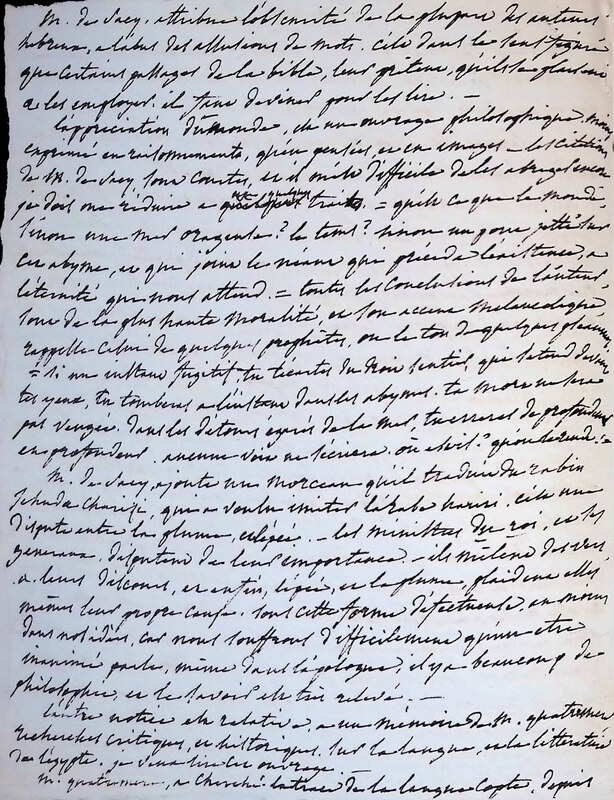 M. de Sacy, attribue l'obscurité de la plupart des auteurs
hebreux, a l'abus des allusions de mots. c'est dans le sens figuré
que certains passages de la bible, leur prêtent, qu'ils se plaisent
a les employer. il faut deviner pour les lire. —
l'appréciation du monde, est un ouvrage philosophique, moins
exprimé en raisonnements, qu'en pensées, et en images — les citations
de M. de Sacy, sont courtes, et il m'est difficile de les abréger encore
je dois me réduire a quelques traits. = qu'est ce que le monde
sinon une mer orageuse? le tems? sinon un pont jetté sur
cet abyme, et qui joint le néant qui précède l'existence, a
l'éternité qui nous attend. = toutes les conclusions de l'auteur
sont de la plus haute moralité, et son accent mélancolique,
rappelle celui de quelques prophètes, ou le ton de quelques pseaumes
= si un instant fugitif, tu t'écartes du droit sentier, qui s'étend devant
tes yeux, tu tomberas a l'instant dans les abymes. ta mort ne sera
pas vengée. dans les détours de la mer, tu erreras de profondeur
en profondeur. aucune voix ne s'écriera. où est-il? qu'on le rende! =
M. de Sacy, ajoute un morceau qu'il traduit du rabin
Jehuda Charizi, qui a voulu imiter l'arabe hariri. c'est une
dispute entre la plume, et l'épée. — les ministres du roi, et les
generaux, disputent de leur importance. — ils mêlent des vers
a leurs discours, et enfin, l'épée, et la plume, plaident elles
mêmes leur propre cause. sous cette forme défectueuse, au moins
dans nos idées, car nous souffrons difficilement qu'un être
inanimé parle, même dans l'apologue, il y a beaucoup de
philosophie, et le savoir est très relevé. —
l'autre notice est relative, a un mémoire de M. quatremer
recherches critiques, et historiques, sur la langue, et la littérature
de l'égypte. je veux lire cet ouvrage.
M. quatremer, a cherché la trace de la langue copte, depuis